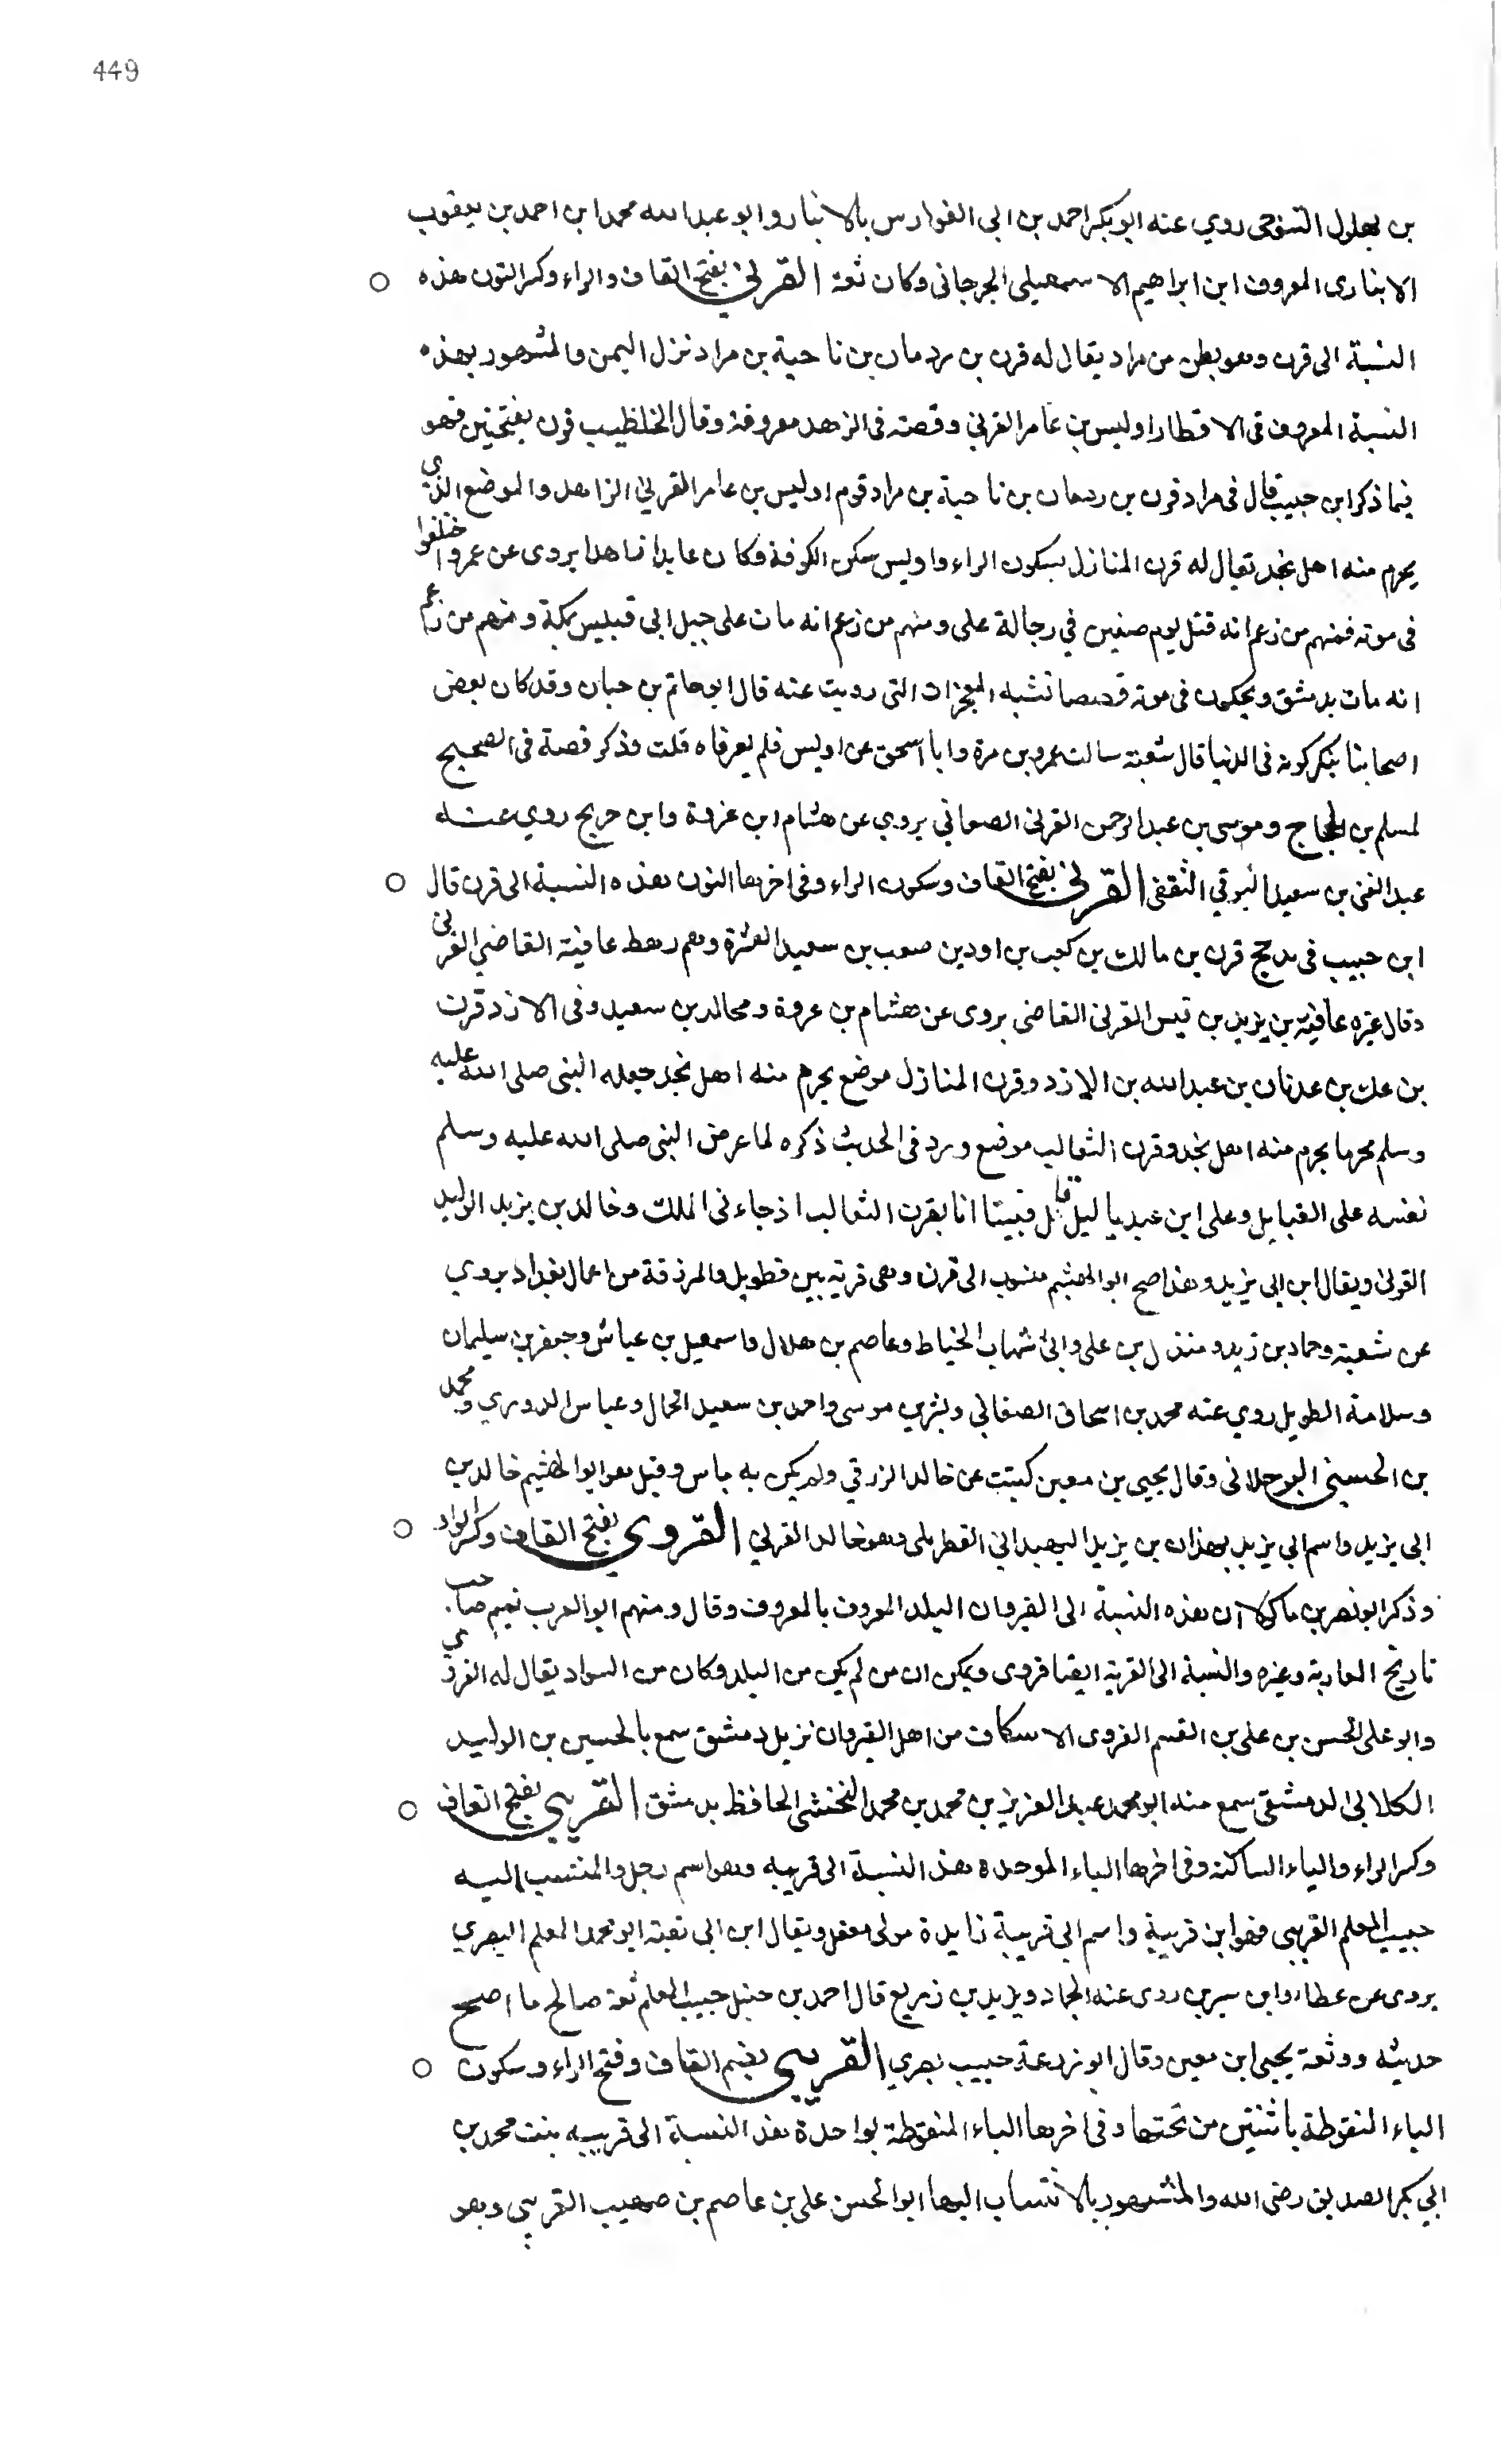 449
بن بهلول التنوخى روي عنه ابو بكر احمد بن ابى الفوارس بالانبار وابو عبد الله محمد ابن احمد بن يعقوب
الانبارى المعروف ابن ابراهيم الاسمعيلى الجرجانى وكان ثقة القرنى بفتح القاف والراء وكسر النون هذه
النسبة الى قرن وهو بطن من مراد يقال له قرن بن ردمان بن ناحية بن مراد نزل اليمن والمشهور بهذه
النسبة المعروف فى الاقطار اويس بن عامر القرنى وقصته فى الزهد معروفة وقال الخطيب قرن بفتحتين فهو
فيما ذكر ابن حبيب قال فى مراد قرن بن ردمان بن ناحية بن مراد قوم اويس بن عامر القرني الزاهد والموضع الذي
يحرم منه اهل نجد يقال له قرن المنازل بسكون الراء واويس سكن الكوفة وكان عابدا زاهدا يروى عن عمر واختلفوا
فى موته فمنهم من زعم انه قتل يوم صفين في رجالة على ومنهم من زعم انه مات على جبل ابى قبيس بمكة ومنهم من زعم
انه مات بدمشق ويحكون فى موته قصصا تشبه المعجزات التى رويت عنه قال ابو حاتم بن حبان وقد كان بعض
اصحابنا ينكر كونه فى الدنيا قال شعبة سالت عمرو بن مرة وابا اسحق عن اويس فلم يعرفاه قلت وذكر قصة فى الصحيح
لمسلم بن الحجاج وموسى بن عبد الرحمن القرنى الصعانى يروى عن هشام ابن عروة وابن جريج روي عنه
عبد الغنى بن سعيد الثقفى القرنى بفتح القاف وسكون الراء وفى اخرها النون هذه النسبة الى قرن قال
ابن حبيب فى مدحج قرن بن مالك بن كعب بن اود بن صعب بن سعيد العشرة وهم رهط عافية القاضي القرنى
وقال غيره عافية بن يزيد بن قيس القرنى القاضى يروى عن هشام بن عروة ومجالد بن سعيد وفى الازد قرن
بن عك بن عدنان بن عبد الله بن الازد وقرن المنازل موضع يحرم منه اهل نجد جعله النبى صلى الله عليه
وسلم محرما يحرم منه اهل نجد وقرن الثعالب موضع ورد فى الحديث ذكره لما عرض النبى صلى الله عليه وسلم
نفسه على القبايل وعلى ابن عبد ياليل قال فبينا انا بقرن الثعالب اذ جاءنى الملك وخالد بن يزيد الوليد
القرنى ويقال ابن ابى يزيد وهذا صح ابو الهيثم منسوب الى قرن وهى قرية بين قطربل والمرزقة من اعمال بغداد يروي
عن شعبة وحماد بن زيد ومندل بن على وابى شهاب الخياط وعاصم بن هلال واسمعيل بن عياش وجعفر بن سليمان
وسلامة الطويل روي عنه محمد بن اسحاق الصغانى وبشر بن موسى واحمد بن سعيد الجمال وعباس الدوري ومحمد
بن الحسين البرجلانى وقال يحيى بن معين كتبت عن خالد الزرقي ولم يكن به باس وقيل هو ابو الهثيم خالد بن
ابى يزيد واسم ابي يزيد بهذان بن يزيد البهبذانى القطربلى وهو خالد القرني القروي بفتح القاف وكسر الواو
وذكر ابو نصر بن ماكولا ان هذه النسبة الى القيروان البلد المعروف بالمعروف وقال ومنهم ابو العرب تميم صاحب
تاريخ المغاربة وغيره والنسبة الى القرية ايضا قروى ويمكن ان من لم يكن من البلد وكان من السواد يقال له القروي
وابو على الحسن بن على بن القسم القروى الاسكاف من اهل القيروان نزيل دمشق سمع بالحسين بن الوليد
الكلابى الدمشقى سمع منه ابو محمد عبد العزيز بن محمد بن محمد النخشبى الحافظ بدمشق القريبى بفتح القاف
وكسر الراء والياء الساكنة وفى اخرها الباء الموحدة هذه النسبة الى قريبه وهو اسم رجل والمنتسب اليه
حبيب المعلم القريبى فهو ابن قريبة واسم ابي قريبة زايدة مولى معقل ويقال ابن ابى بقية ابو محمد المعلم البصري
يروى عن عطاء وابن سيرين روى عنه الحماد ويزيد بن زريع قال احمد بن حنبل حبيب المعلم ثقة صالح ما اصح
حديثه ووثقة يحيى ابن معين وقال ابو زرعة حبيب بصري القريبى بضم القاف وفتح الراء وسكون
الياء المنقوطة باثنتين من تحتها وفى اخرها الباء المنقوطة بواحدة هذه النسبة الى قريبه بنت محمد بن
ابي بكر الصديق رضى الله والمشهور بالانتساب اليها ابو الحسن على بن عاصم بن صهيب القريبى وهو